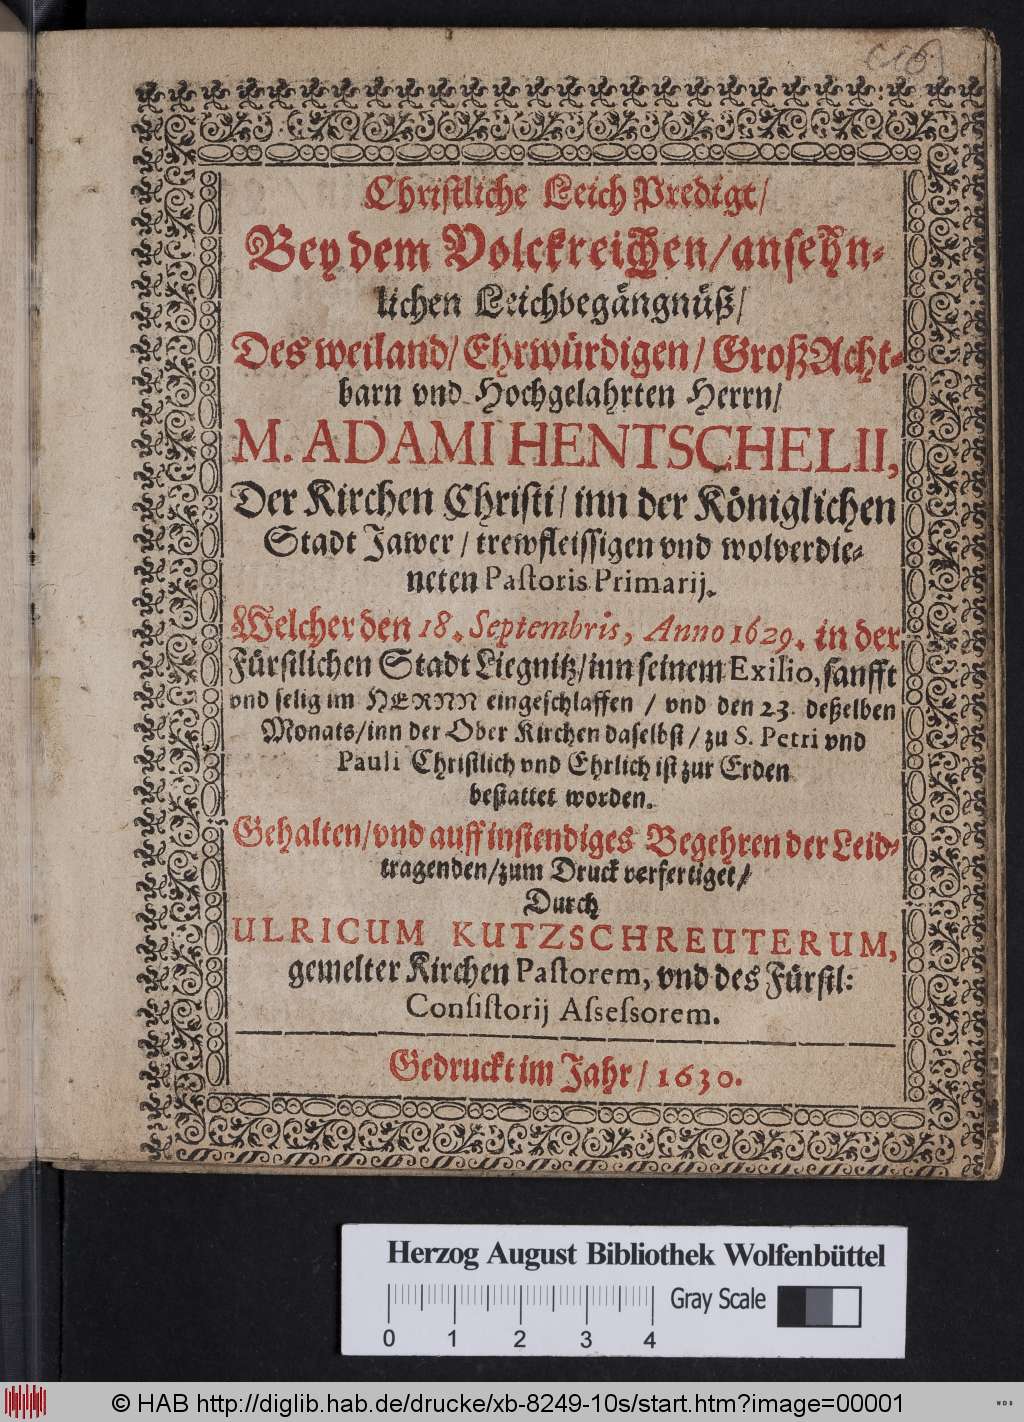 Christliche Leich Predigt/
Bey dem Volckreichen/ansehn-
lichen Leichbegängnüß/
Des weiland/ Ehrwürdigen/ GroßAcht-
barn vnd Hochgelahrten Herrn/
M. ADAMI HENTSCHELII,
Der Kirchen Christi/ inn der Königlichen
Stadt Jawer/ trewfleissigen vnd wolverdie-
neten Pastoris Primarij.
Welcher den 18. Septembris, Anno 1629. in der
Fürstlichen Stadt Liegnitz/inn seinem Exilio, sanfft
vnd selig im HERNN eingeschlaffen / vnd den 23. deßelben
Monats/inn der Ober Kirchen daselbst/ zu S. Petri vnd
Pauli Christlich vnd Ehrlich ist zur Erden
bestattet worden.
Gehalten/vnd auff instendiges Begehren der Leid-
tragenden/zum Druck verfertiget/
Durch
ULRICUM KUTZSCHREUTERUM,
gemelter Kirchen Pastorem, vnd des Fürstl:
Consistorij Assessorem.
Gedruckt im Jahr/ 1630.
Herzog August Bibliothek Wolfenbüttel
Gray Scale
0 1 2 3 4
© HAB http://diglib.hab.de/drucke/xb-8249-10s/start.htm?image=00001